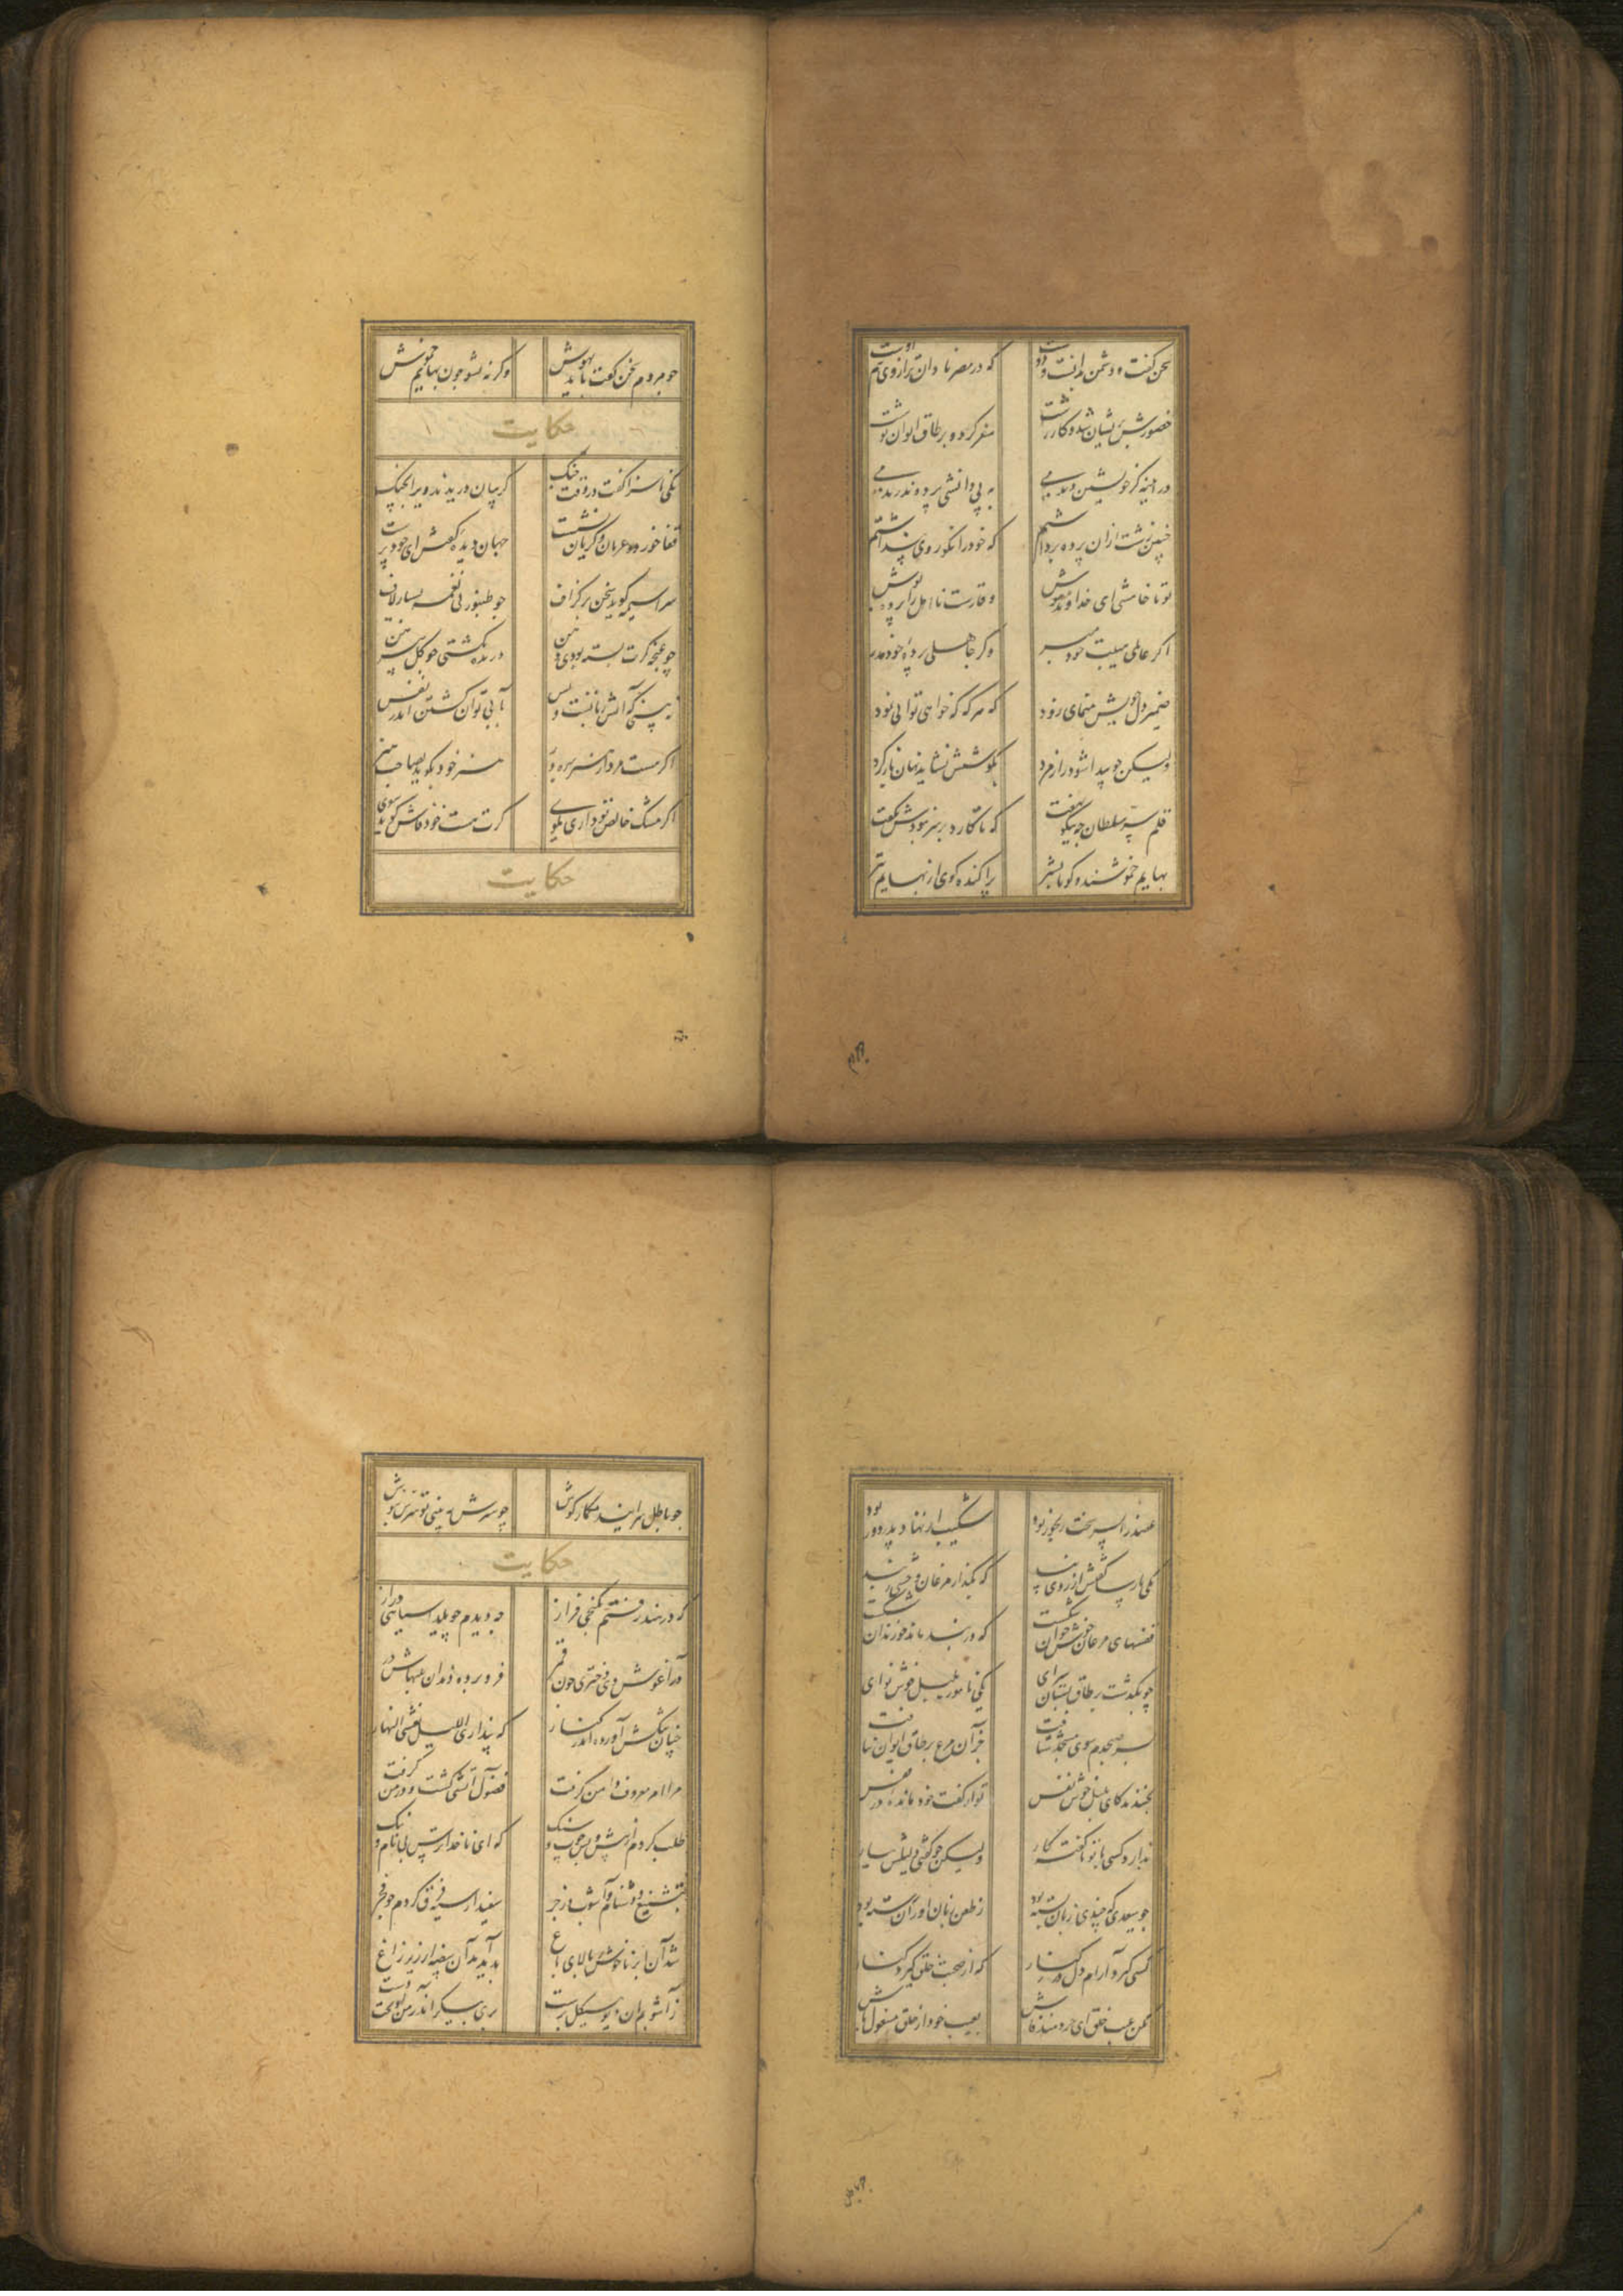 سخن گفت و دشمن بدانست و دوست که در مصر نادان تراز وی هم اوست
حضورش پریشان شد و کار زشت سفر کرد و بر طاق ایوان نوشت
در آیینه گر خویشتن دیدمی به بی دانشی پرده ندریدمی
چنین زشت ازان پرده برداشتم که خود را نکو روی پنداشتم
ترا خامشی ای خداوند هوش وقارست نا اهل را پرده پوش
اگر عالمی هیبت خود مبر وگر جاهلی پردهٔ خود مدر
ضمیر دل خویش منمای زود که هر گه که خواهی توانی نمود
ولیکن چو پیدا شود راز مرد بکوشش نشاید نهان باز کرد
قلم سر سلطان چه نیکو نهفت که تا کارد بر سر نبودش نگفت
بهایم خموشند و گویا بشر پراکنده گوی از بهایم بتر
چو مردم سخن گفت باید بهوش وگرنه شو چون بهایم خموش
حکایت
یکی ناسزا گفت در وقت جنگ گریبان دریدند ویرا بچنگ
قفا خورده عریان و گریان نشست جهان دیده گفتش ای خود پرست
سراسیمه گوید سخن بر گزاف چو طنبور بی نغمه بسیار لاف
چو غنچه گرت بسته بودی دهن دریده نگشتی چو گل پیرهن
نه بینی که آتش زبانست و بس بآبی توان کشتن اندر نفس
اگر هست مرد از هنر بهره ور هنر خود بگوید نه صاحب هنر
اگر مشک خالص نداری مگوی گرت هست خود فاش گردد ببوی
حکایت
عضد را پسر سخت رنجور بود شکیب از نهاد پدر دور بود
یکی پارسا گفتش از روی پند که بگذار مرغان وحشی ز بند
قفسهای مرغان خوش خوان شکست که در بند ماند چو زندان شکست
چو بگذشت بر طاق بستان سرای یکی نامور بلبل خوش نوای
پسر صبحدم سوی مسجد شتافت جز آن مرغ بر طاق ایوان نیافت
بخندید کای بلبل خوش نفس تو از گفت خود مانده در قفس
ندارد کسی با تو ناگفته کار ولیکن چو گفتی دلیلش بیار
چو سعدی که چندی زبان بسته بود ز طعن زبان آوران رسته بود
کسی گیرد آرام دل در کنار که از صحبت خلق گیرد کنار
مکن عیب خلق ای خردمند فاش بعیب خود از خلق مشغول باش
چو باطل سرایند مگمار گوش چو بی ستر بینی تو بصیرت بپوش
حکایت
که در هند رفتم بکنجی فراز چه دیدم چو یلدا سیاهی دراز
در آغوش وی دختری چون قمر فرو برده دندان بلبهاش در
چنان تنگش آورده اندر کنار که پنداری اللیل یغشی النهار
مرا امر معروف دامن گرفت فضول آتشی گشت و در من گرفت
طلب کردم از پیش و پس چوب و سنگ که ای ناخداترس بی نام و ننگ
بتشنیع و دشنام و آشوب و زجر سفید از سیه فرق کردم چو فجر
شد آن ابر ناخوش ز بالای باغ پدید آمد آن بیضه از زیر زاغ
ز آشوبم ان دیو هیکل برست پری پیکر اندر من آویخت دست